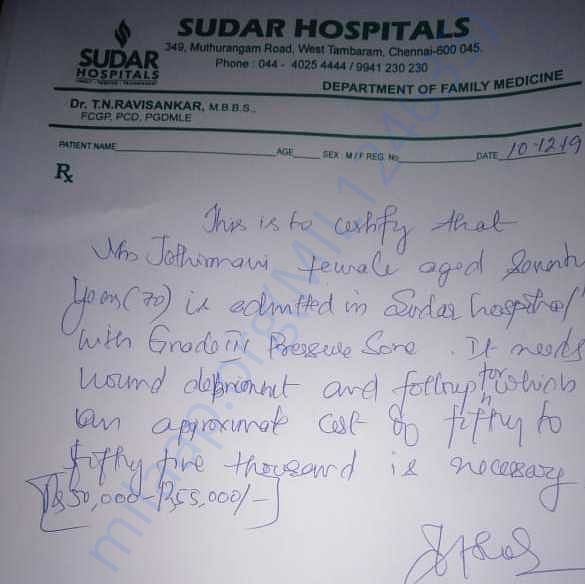 SUDAR HOSPITALS
349, Muthurangam Road, West Tambaram, Chennai-600 045.
Phone : 044 - 4025 4444 / 9941 230 230
SUDAR
HOSPITALS
DEPARTMENT OF FAMILY MEDICINE
Dr. T.N.RAVISANKAR, M.B.B.S.,
FCGP, PCD, PGDMLE
PATIENT NAME AGE SEX : M / F REG. No DATE 10-12-19
Rx
This is to certify that
Mrs Jothimani female aged
Years (70) is admitted in Sudar hospital
with Grade III Pressure Sore. It needs
wound and for which
an approximate cost of fifty to
fifty five thousand is necessary
[Rs 50,000 - Rs 55,000/-]